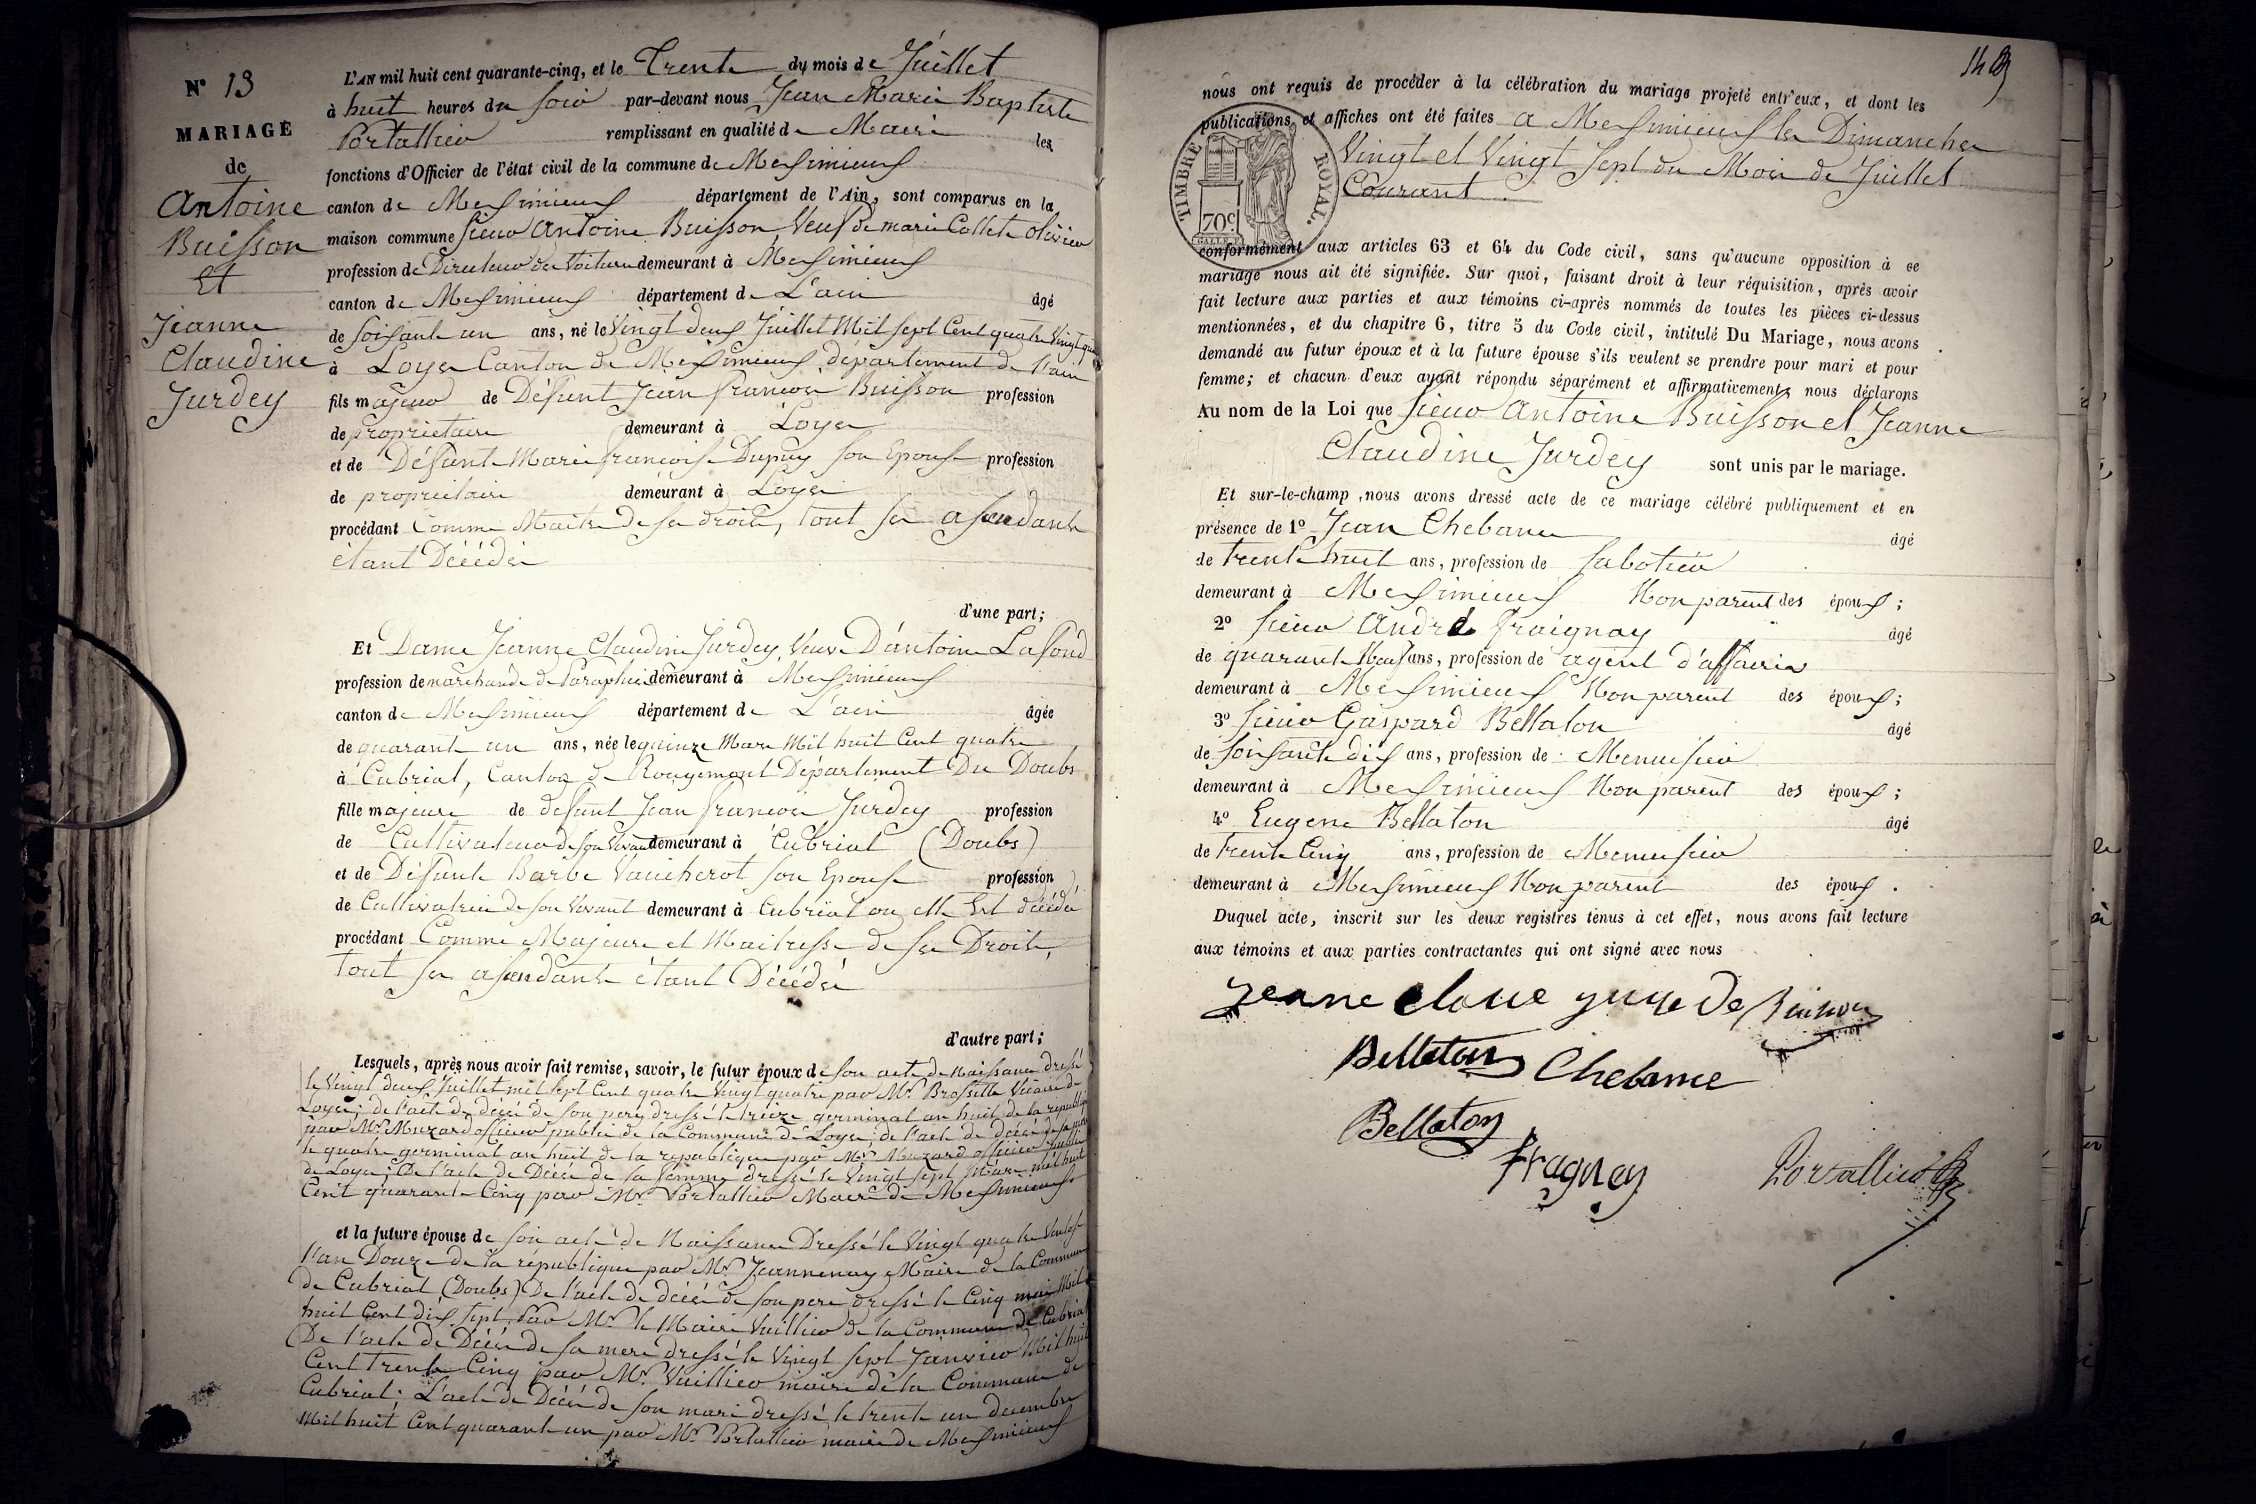 N° 13
MARIAGE
de
Antoine
Buisson
Et
Jeanne
Claudine
Jurdey
L'AN mil huit cent quarante-cinq, et le Trente du mois de Juillet
à huit heures du soir par-devant nous Jean Marie Baptiste
Portallier remplissant en qualité de Maire les
fonctions d'Officier de l'état civil de la commune de Meximieux
canton de Meximieux département de l'Ain, sont comparus en la
maison commune sieur Antoine Buisson, Veuf de marie Collete olivier
profession de Directeur des Voitures demeurant à Meximieux
canton de Meximieux département de L'ain âgé
de soixante un ans, né le Vingt deux Juillet Mil sept Cent quatre Vingt quatre
à Loyes Canton de Meximieux, département de l'ain
fils majeur de Défunt Jean francois Buisson profession
de proprietaire demeurant à Loyes
et de Défunte Marie francoise Dupuy son Epouse profession
de proprietaire demeurant à Loyes
procédant Comme Maitre de ses droits, tout ses asendants
étant Décédés
d'une part;
Et Dame Jeanne Claudine Jurdey, Veuve D'antoine Lafond
profession de marchande de Parapluies demeurant à Meximieux
canton de Meximieux département de L'ain âgée
de quarante un ans, née le quinze Mars Mil huit Cent quatre
à Cubrial, Canton de Rougemont Département Du Doubs
fille majeure de defunt Jean francois Jurdey profession
de Cultivateur de son Vivant demeurant à Cubrial (Doubs)
et de Défunte Barbe Vaucherot son Epouse profession
de Cultivatrice de son Vivant demeurant à Cubrial ou elle Est décédé
procédant Comme Majeure et Maitresse de ses Droits,
tout ses asendants étant Décédés
d'autre part;
Lesquels, après nous avoir fait remise, savoir, le futur époux de son acte de Naissance dressé
le Vingt deux Juillet mil sept Cent quatre Vingt quatre par Mr. Brossette Vicaire de
Loyes; de l'acte de décès de son pere dressé le treize germinal an huit de la republique
par Mr. Muzard officier public de la Commune de Loyes; de l'acte de décès de sa mere
le quatre germinal an huit de la republique par Mr. Muzard officier public
de Loyes; De l'acte de Décès de sa femme dressé le Vingt sept Mars mil huit
Cent quarante Cinq par Mr. Portallier Maire de Meximieux
et la future épouse de son acte de Naissance Dressé le Vingt quatre Ventose
l'an Douze de la république par Mr. Jeannenay Maire de la Commune
de Cubrial (Doubs) De l'acte de décès de son pere dressé le Cinq mai Mil
huit Cent dix sept par Mr. le Maire Vuillier de la Commune de Cubrial
(De l'acte de Décès de sa mere dressé le Vingt sept Janvier Mil huit
Cent trente Cinq par Mr. Vuillier maire de la Commune de
Cubrial; L'acte de Décès de son mari dressé le trente un decembre
Mil huit Cent quarante un par Mr. Portallier maire de Meximieux
nous ont requis de procéder à la célébration du mariage projeté entr'eux, et dont les
publications et affiches ont été faites a Meximieux les Dimanches
Vingt et Vingt Sept du Mois de Juillet
Courant.
TIMBRE ROYAL.
70c.
conformément aux articles 63 et 64 du Code civil, sans qu'aucune opposition à ce
mariage nous ait été signifiée. Sur quoi, faisant droit à leur réquisition, après avoir
fait lecture aux parties et aux témoins ci-après nommés de toutes les pièces ci-dessus
mentionnées, et du chapitre 6, titre 5 du Code civil, intitulé Du Mariage, nous avons
demandé au futur époux et à la future épouse s'ils veulent se prendre pour mari et pour
femme; et chacun d'eux ayant répondu séparément et affirmativement, nous déclarons
Au nom de la Loi que sieur Antoine Buisson et Jeanne
Claudine Jurdey sont unis par le mariage.
Et sur-le-champ, nous avons dressé acte de ce mariage célébré publiquement et en
présence de 1° Jean Chebance âgé
de trente huit ans, profession de Sabotier
demeurant à Meximieux Non parent des époux;
2° sieur André Fraignay âgé
de quarante Neuf ans, profession de agent d'affaires
demeurant à Meximieux Non parent des époux;
3° sieur Gaspard Bellaton âgé
de soixante dix ans, profession de Menuisier
demeurant à Meximieux Non parent des époux;
4° Eugene Bellaton âgé
de trente Cinq ans, profession de Menuisier
demeurant à Meximieux Non parent des époux.
Duquel acte, inscrit sur les deux registres tenus à cet effet, nous avons fait lecture
aux témoins et aux parties contractantes qui ont signé avec nous
Buisson
Bellaton Chebance
Bellaton
Fragnay Portallier